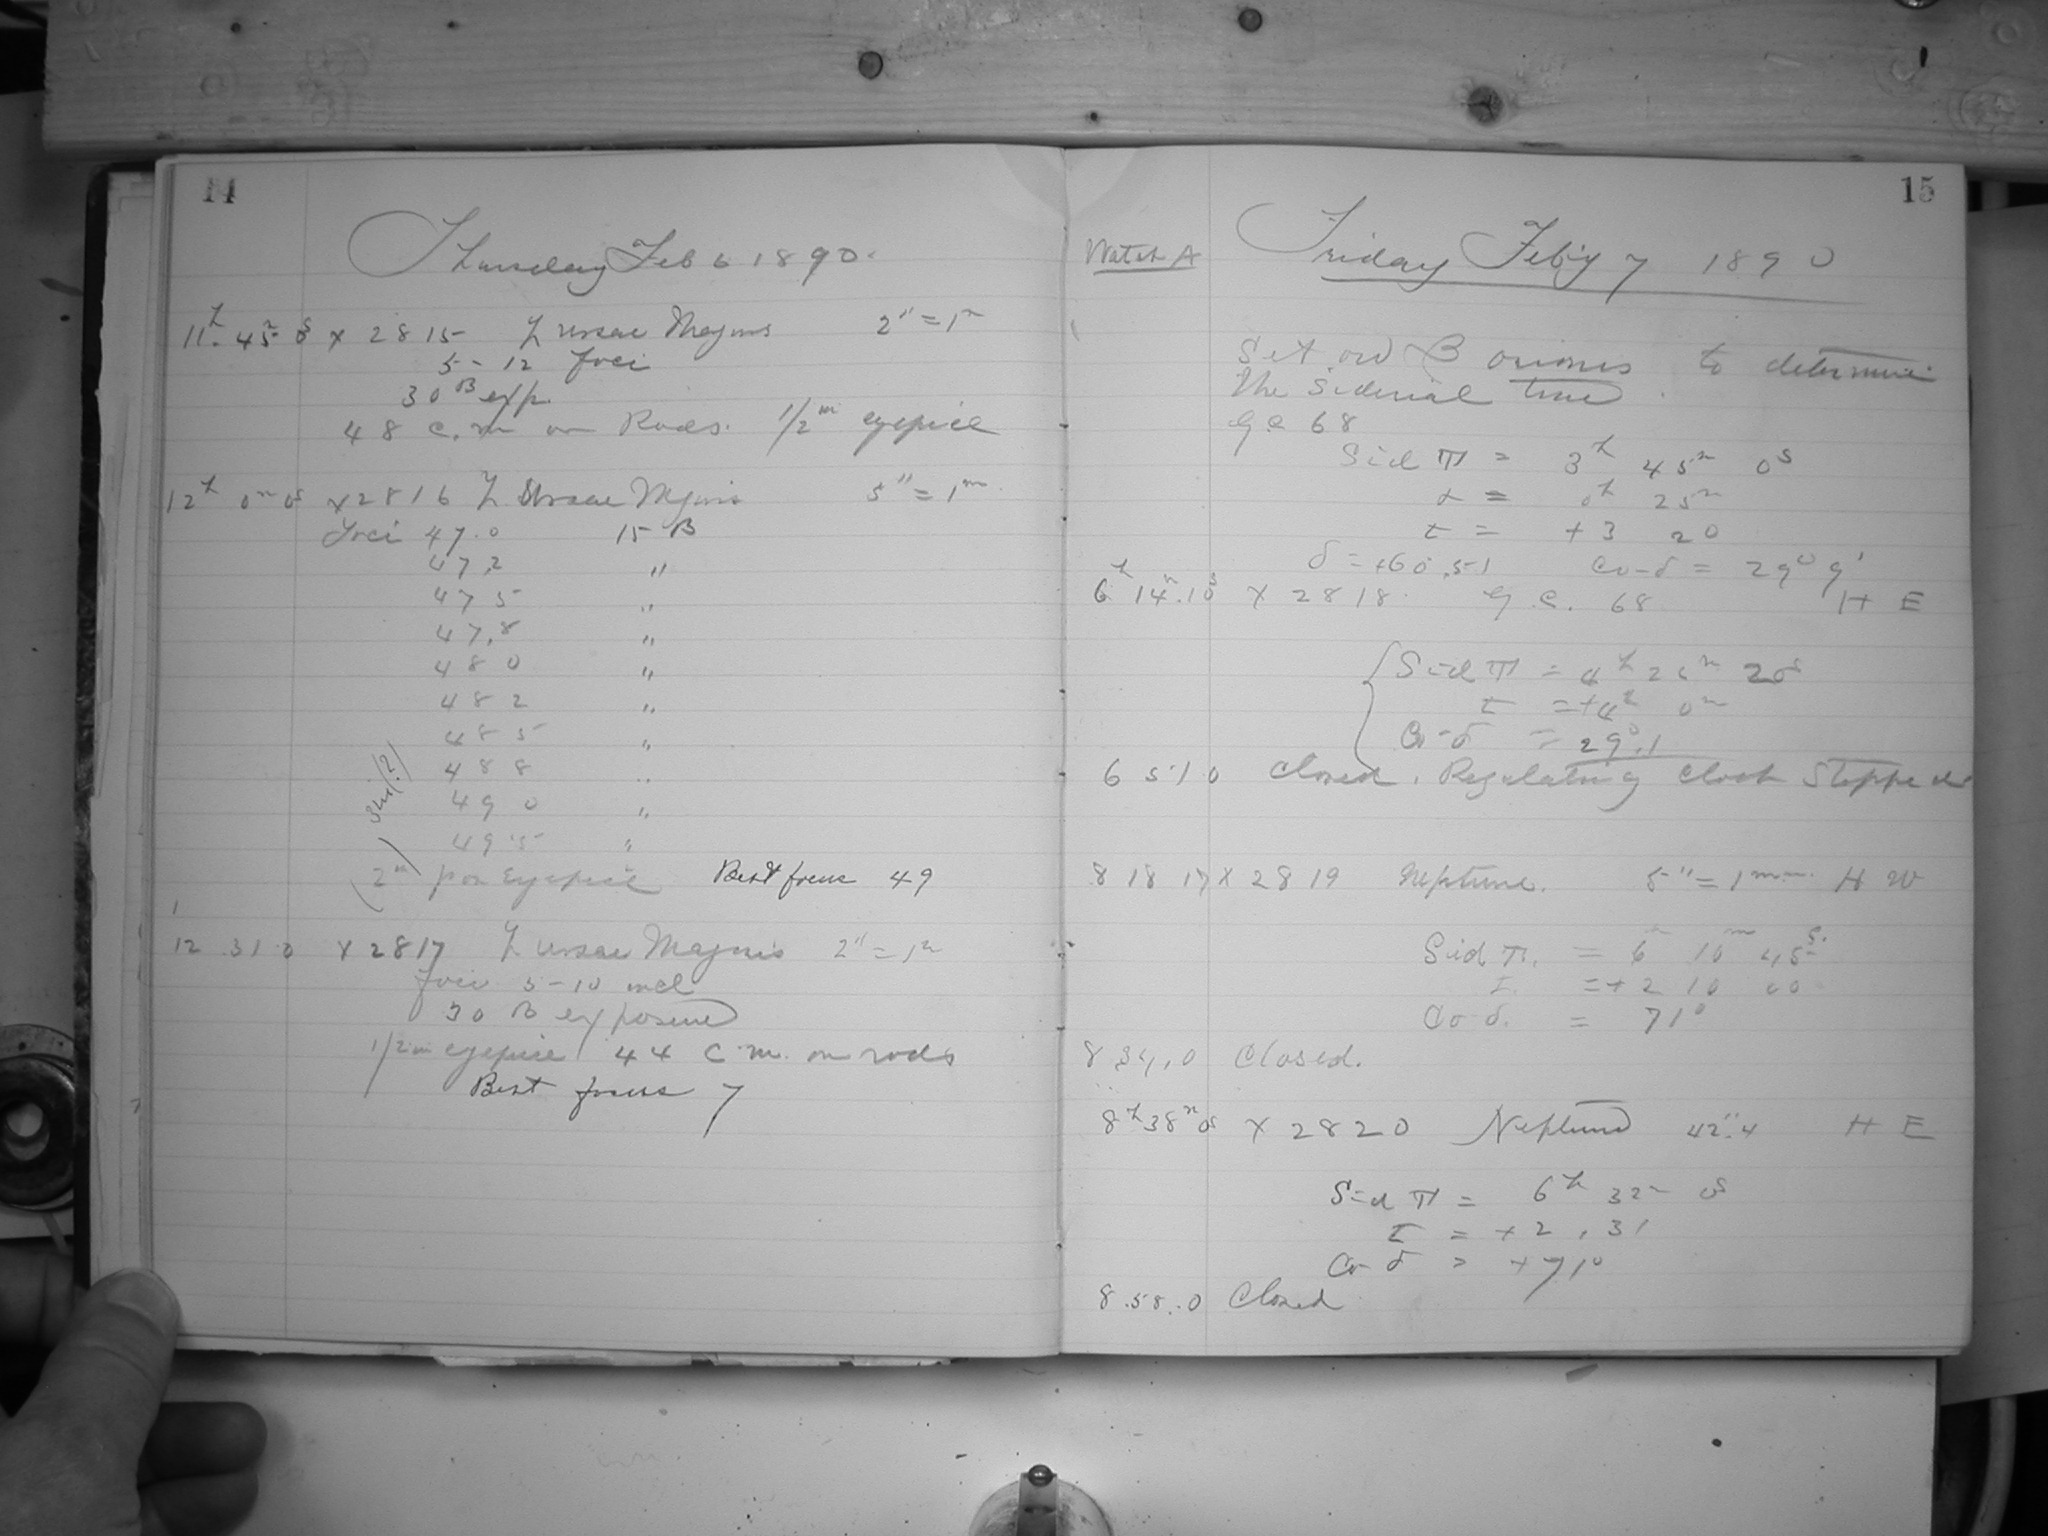 14
Thursday Feb 6 1890.
11h 45m 0s X 2815 ζ Ursae Majoris 2" = 1m
5-12 foci
30 B exp.
48 c.m on Rods. 1/2 m eyepiece
12h 0m 0s X 2816 ζ Ursae Majoris 5" = 1m
Foci 47.0 15 B
47.2 "
47 5 "
47.8 "
48 0 "
48 2 "
48 5 "
48 8 "
49 0 "
49 5 "
2m pos eyepiece Best focus 49
12 31 0 X 2817 ζ Ursae Majoris 2" = 1m
foci 5-10 incl
30 B exposure
1/2 m eyepiece 44 c.m. on rods
Best focus 7
15
Watch A Friday Feb'y 7 1890
Set on β Orionis to determine
the Siderial time.
G.C. 68
Sid T = 3h 45m 0s
α = 0h 25m
t = +3 20
δ = +60.51 Co-δ = 29° 9'
6h 14m 10s X 2818. G.C. 68 H E
Sid T = 4h 26m 20s
t = +4h 0m
Co-δ = 29°.1
6 51 0 Closed. Regulating clock stopped
8 18 17 X 2819 Neptune. 5" = 1mm. H W
Sid T. = 6h 10m 45s.
t. = +2 10 00
Co δ. = 71°
8 34.0 Closed.
8h 38m 0s X 2820 Neptune 42".4 H E
Sid T = 6h 32m 0s
t = +2.31
Co δ = +71°
8.58.0 Closed